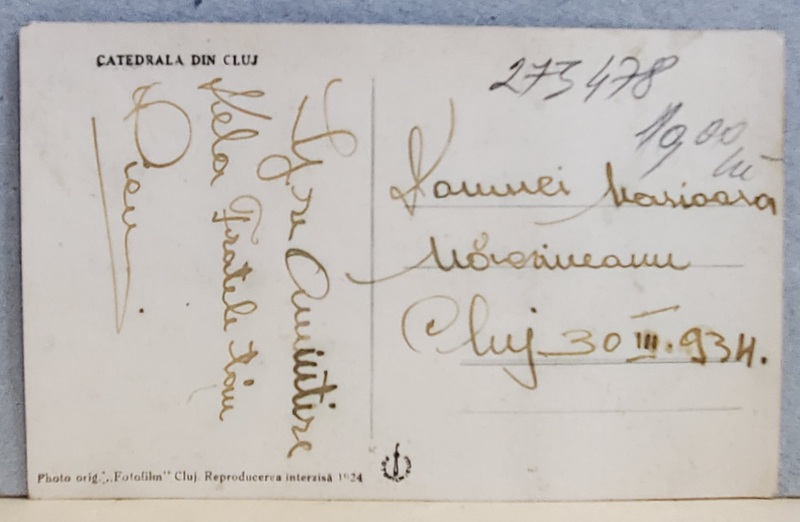 CATEDRALA DIN CLUJ
273478
1900
lei
Spre Amintire
dela Fratele tău
Doamnei Marioara
Mărgineanu
Cluj 30 III. 934.
Photo orig. „Fotofilm” Cluj. Reproducerea interzisă